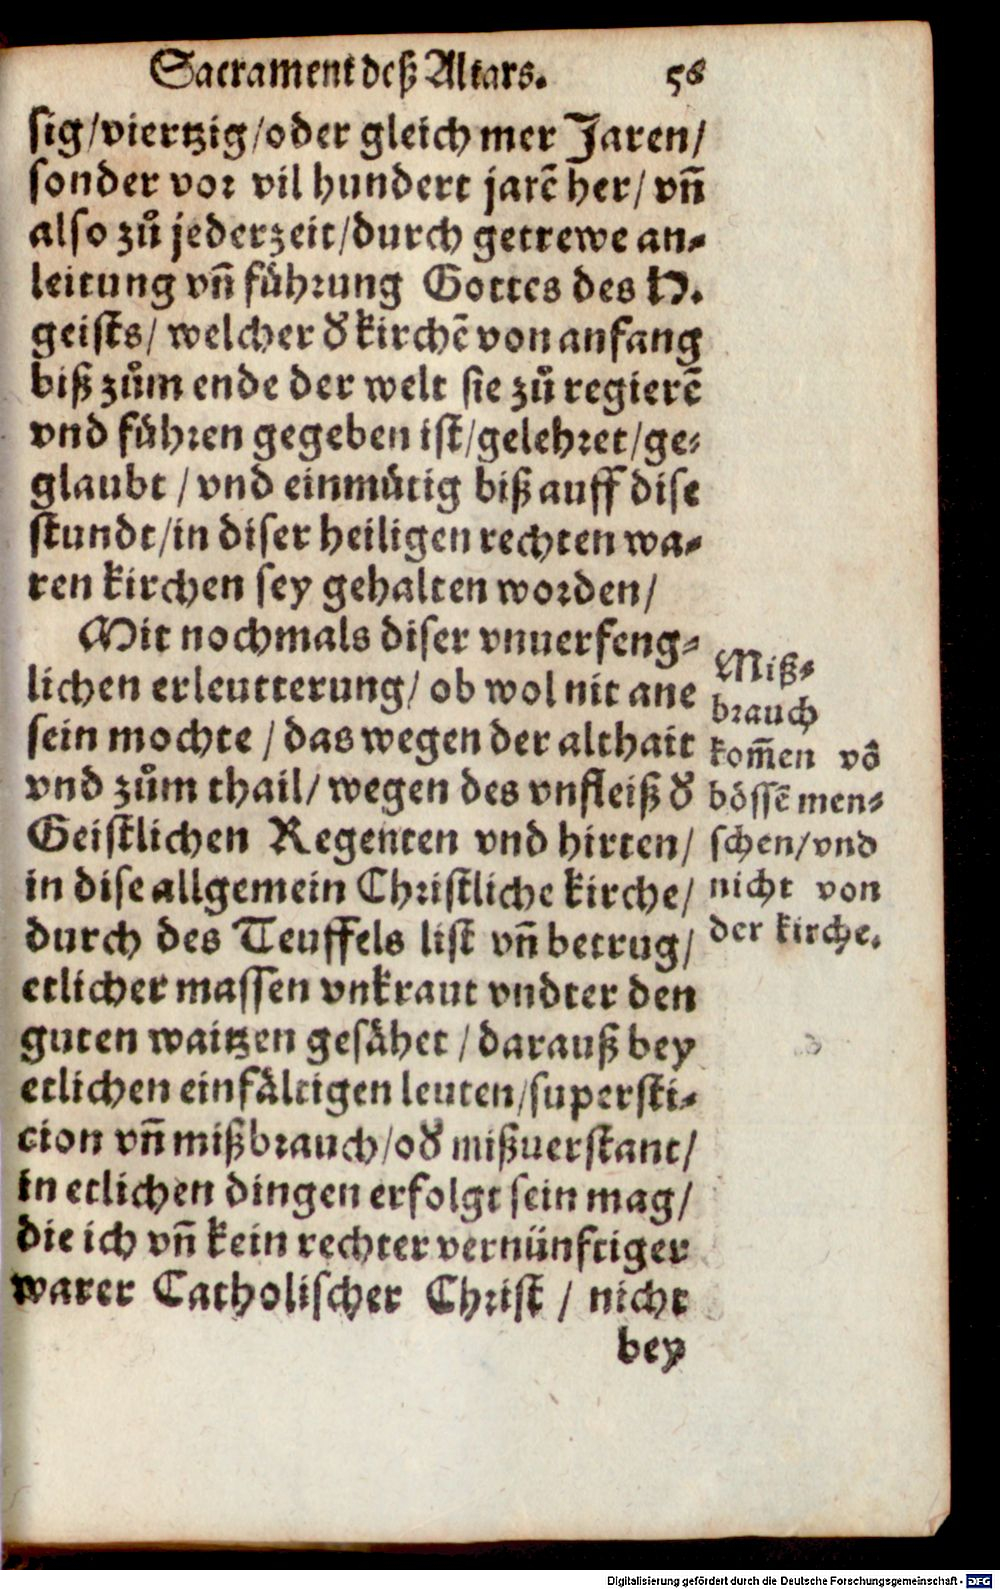 Sacrament deß Altars. 56
sig/viertzig/oder gleich mer Jaren/
sonder vor vil hundert jarẽ her/ vñ
also zů jederzeit/durch getrewe an-
leitung vñ führung Gottes des H.
geists/ welcher d' kirchẽ von anfang
biß zům ende der welt sie zů regierẽ
vnd führen gegeben ist/gelehret/ge-
glaubt / vnd einmütig biß auff dise
stundt/in diser heiligen rechten wa-
ren kirchen sey gehalten worden/
Mit nochmals diser vnuerfeng-
lichen erleutterung/ ob wol nit ane
sein mochte / das wegen der althait
vnd zům thail/ wegen des vnfleiß d'
Geistlichen Regenten vnd hirten/
in dise allgemein Christliche kirche/
durch des Teuffels list vñ betrug/
etlicher massen vnkraut vndter den
guten waitzen gesähet / darauß bey
etlichen einfältigen leuten/supersti-
cion vñ mißbrauch/od' mißuerstant/
in etlichen dingen erfolgt sein mag/
die ich vñ kein rechter vernünftiger
warer Catholischer Christ / nicht
bey
Miß-
brauch
kom̃en võ
bössẽ men-
schen/vnd
nicht von
der kirche.
Digitalisierung gefördert durch die Deutsche Forschungsgemeinschaft - DFG